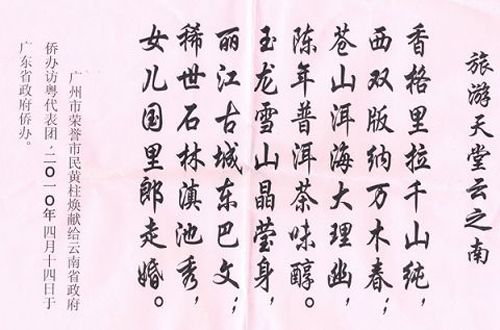 旅游天堂云之南
香格里拉千山纯，
西双版纳万木春；
苍山洱海大理幽，
陈年普洱茶味醇。
玉龙雪山晶莹身，
丽江古城东巴文；
稀世石林滇池秀，
女儿国里郎走婚。
广州市荣誉市民黄柱焕献给云南省政府
侨办访粤代表团，二〇一〇年四月十四日于
广东省政府侨办。